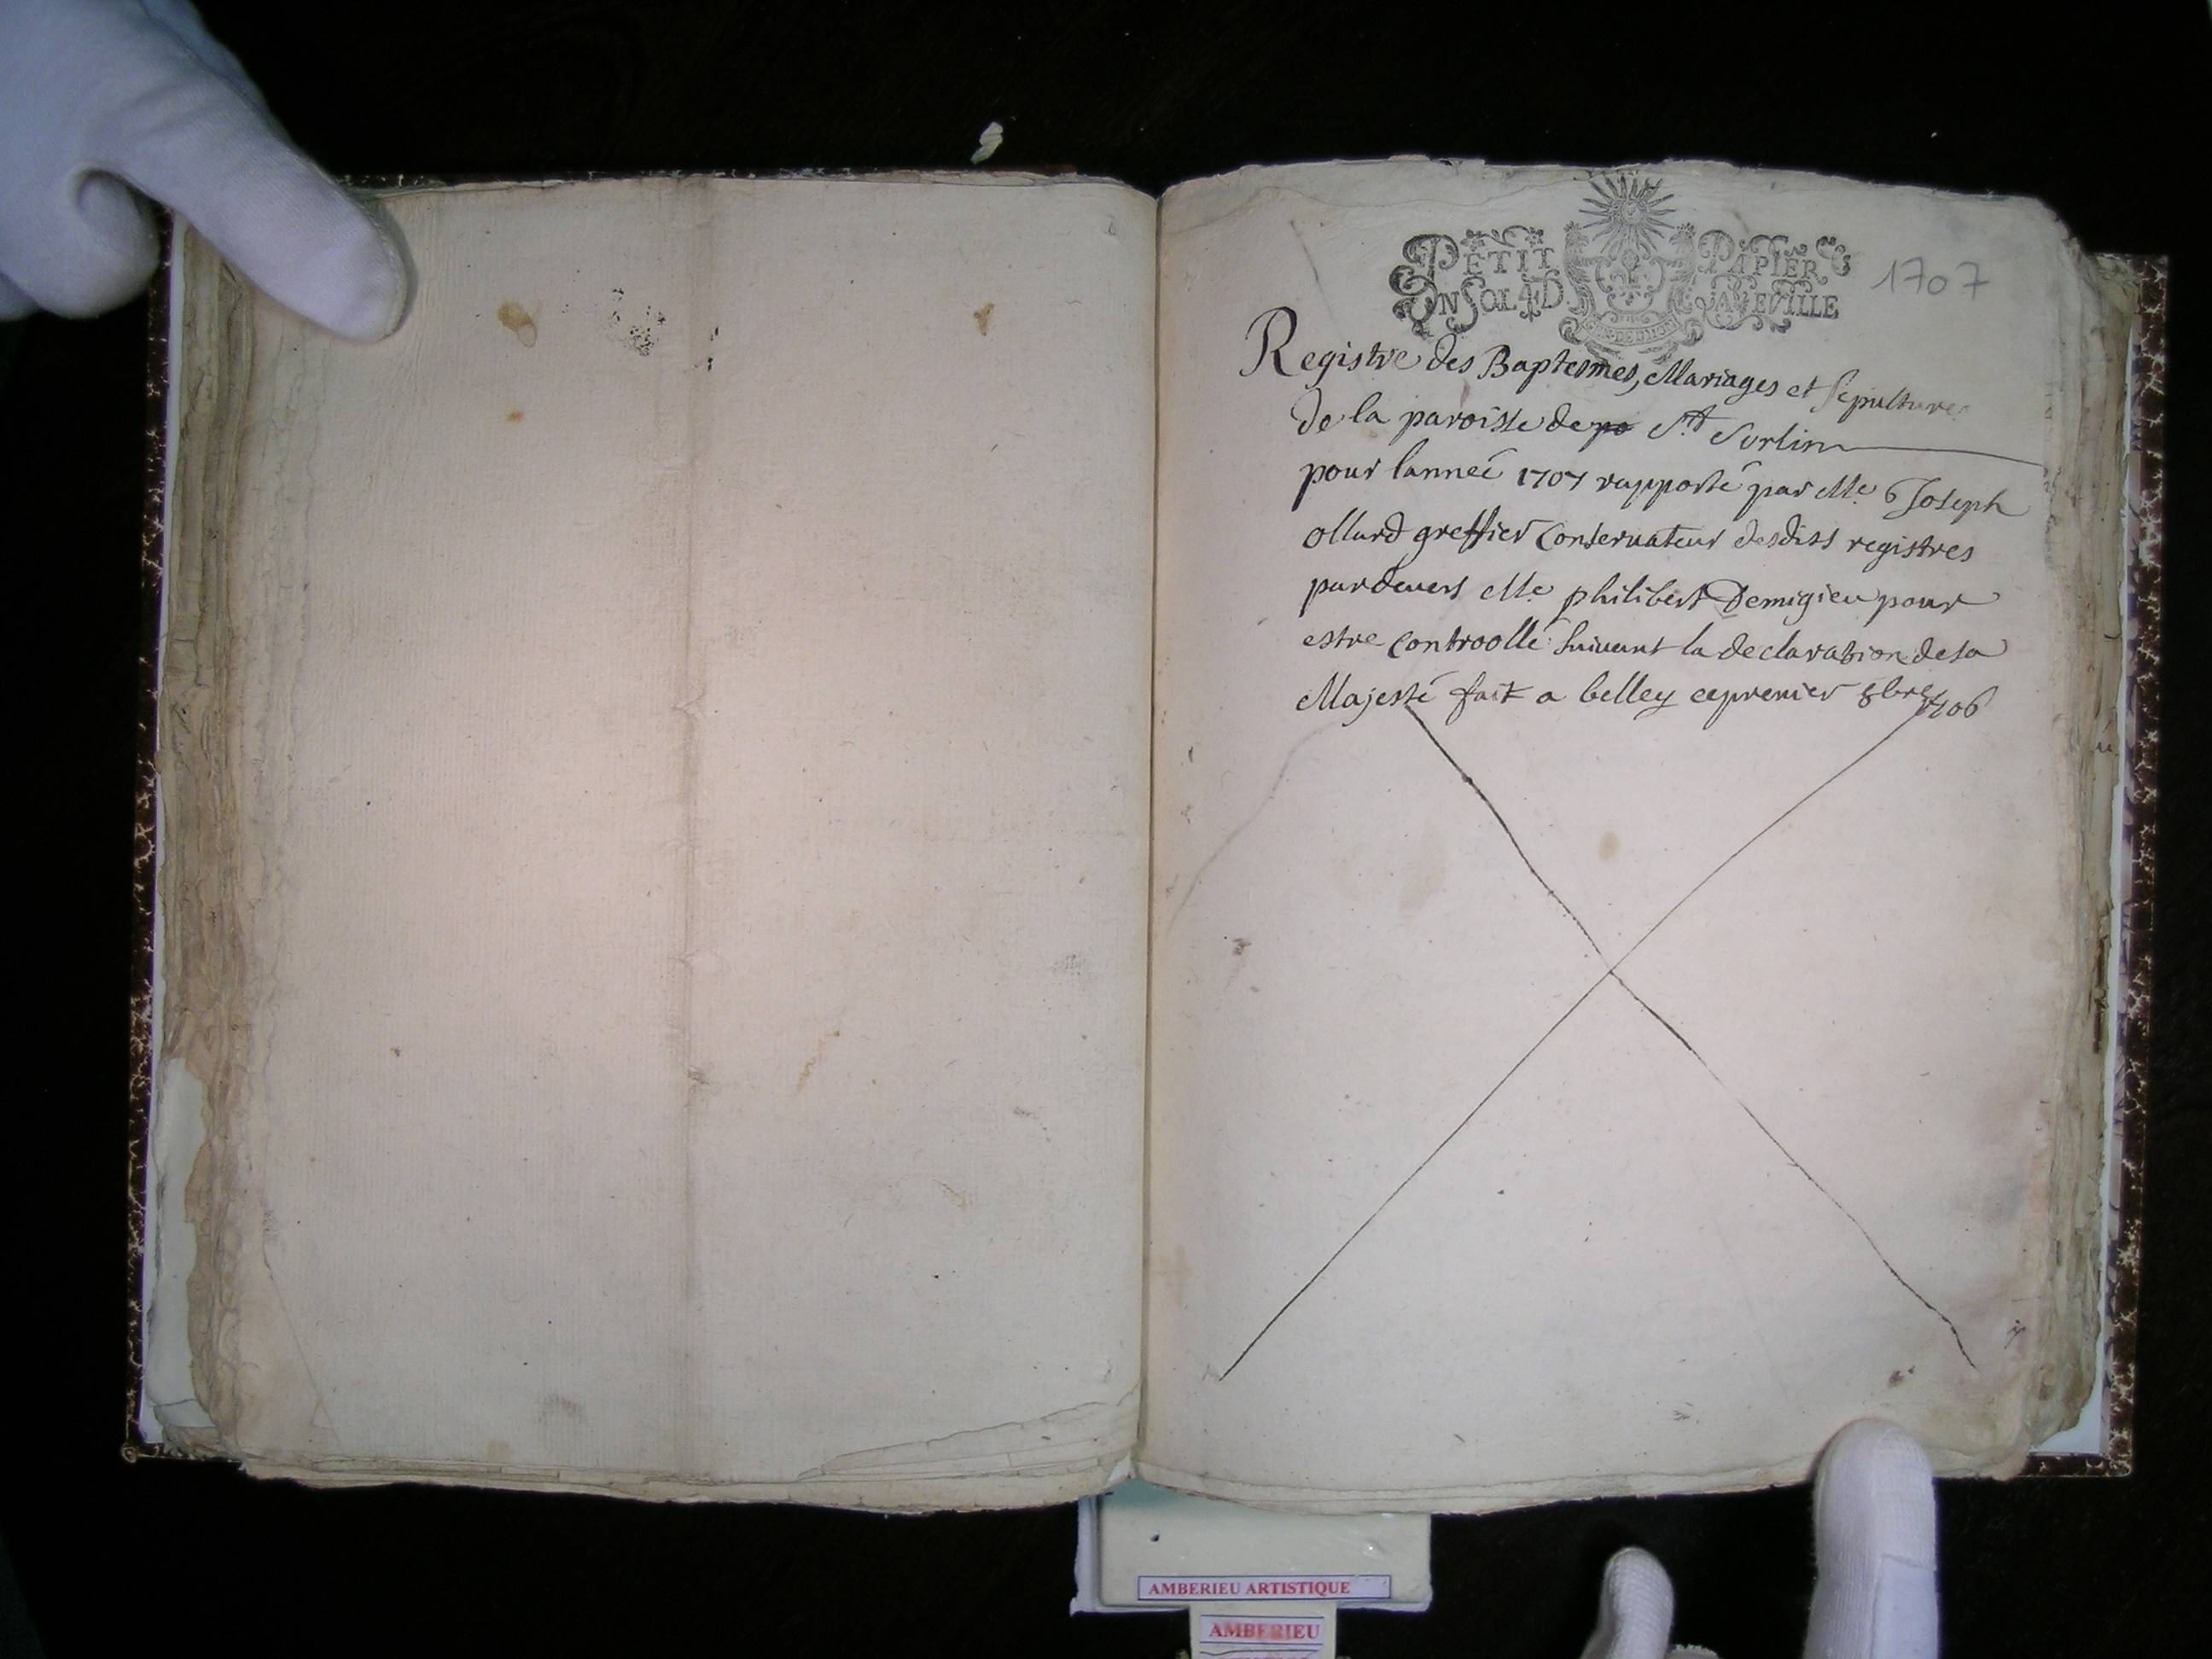 PETIT PAPIER
UN SOL 4D LA FEVILLE
1707
Registre des Baptesmes, Mariages et Sepultures
de la paroisse de St Sorlin
pour lanneé 1707 rapporté par Me Joseph
ollard greffier Conservateur desdits registres
pardevers Me philibert Demigieu pour
estre Controollé suivant la declaration de sa
Majesté fait a belley ce premier 8bre 1706
AMBERIEU ARTISTIQUE
AMBERIEU